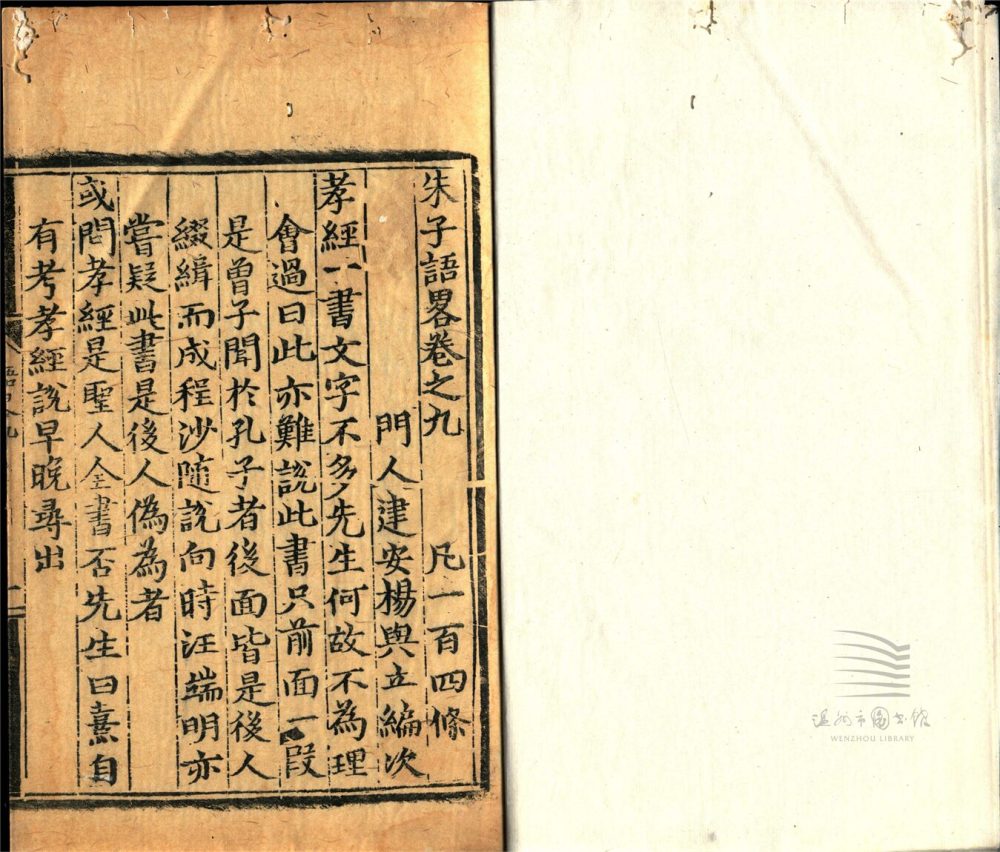 朱子語畧卷之九 凡一百四條
門人建安楊與立編次
孝經一書文字不多先生何故不為理
會過曰此亦難說此書只前面一段
是曾子聞於孔子者後面皆是後人
綴緝而成程沙随說向時汪端明亦
嘗疑此書是後人偽為者
或問孝經是聖人全書否先生曰熹自
有考孝經說早晚尋出
温州市图书馆
WENZHOU LIBRARY